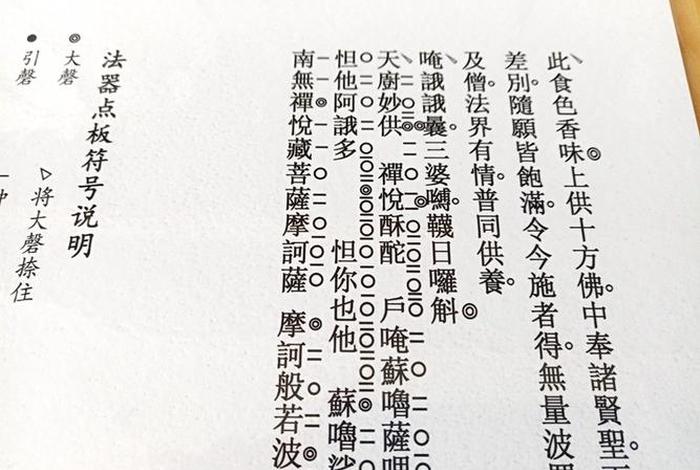 此食色香味◎上供十方佛。中奉諸賢聖。
差別。隨願皆飽滿。令今施者得。無量波
及僧。法界有情。普同供養。
唵誐誐曩。三婆嚩。韈日囉斛◎
天廚妙供 禪悅酥酡 戶唵蘇嚕薩哩
怛他阿誐多 怛你也他 蘇嚕娑
南無禪悅藏菩薩摩訶薩 摩訶般若波
法器点板符号说明
◎大磬 ▷将大磬捺住
●引磬